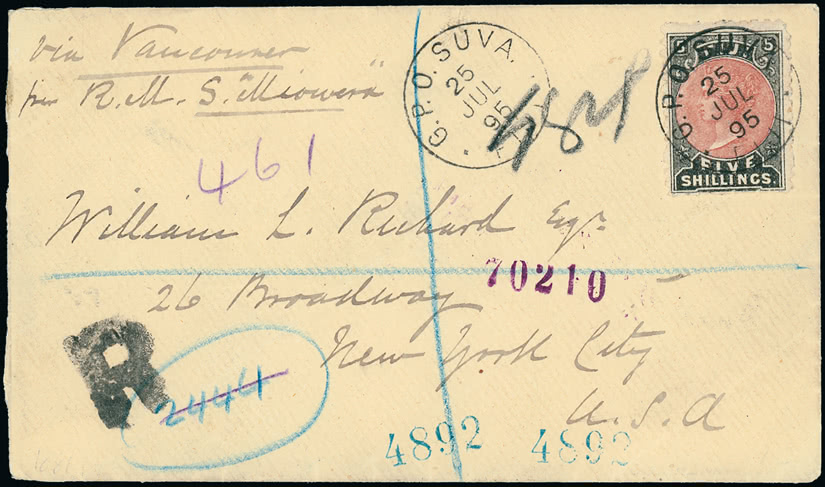 via Vancouver
per R.M.S. "Miowera"
G.P.O. SUVA.
25
JUL
95
5 FIJI 5
G.P.O. SUVA
25
JUL
95
FIVE
SHILLINGS.
461
William L. Richard Esqr
70210
26 Broadway
New York City
U.S.A
R
2444
4892 4892